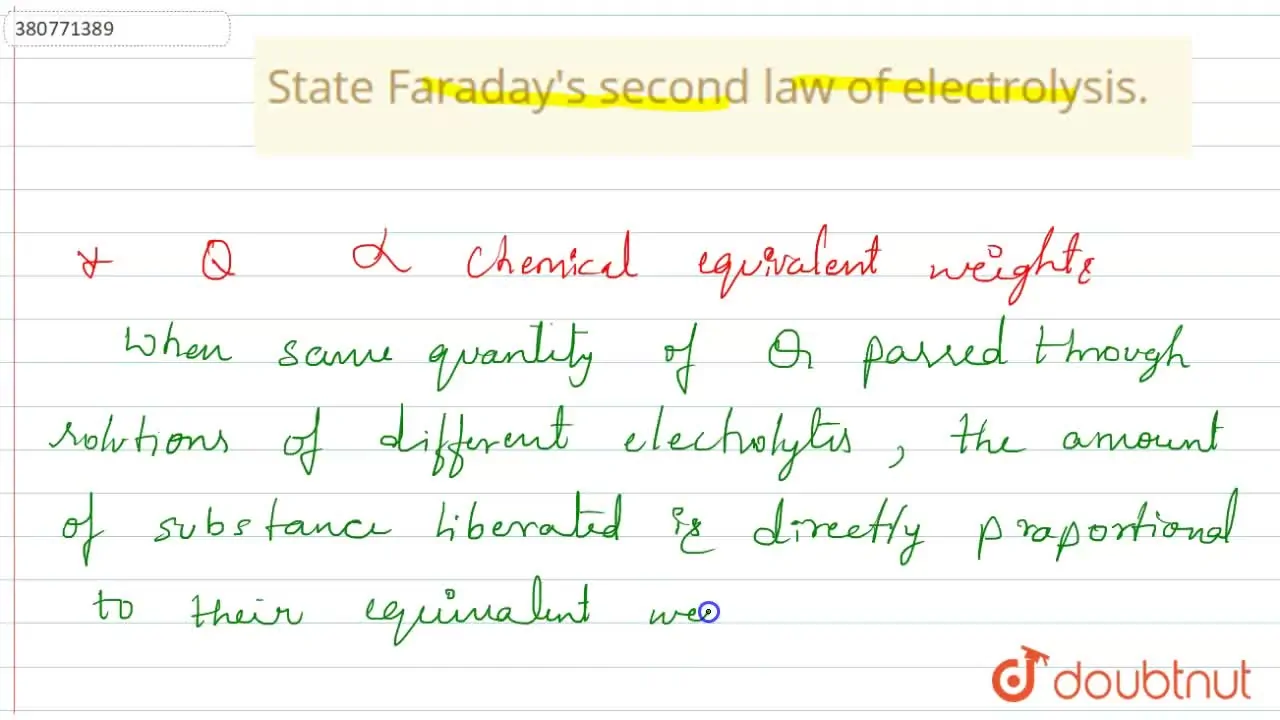 380771389
State Faraday's second law of electrolysis.
* Q ∝ chemical equivalent weights
When same quantity of Q passed through
solutions of different electrolytes, the amount
of substance liberated is directly proportional
to their equivalent we
doubtnut